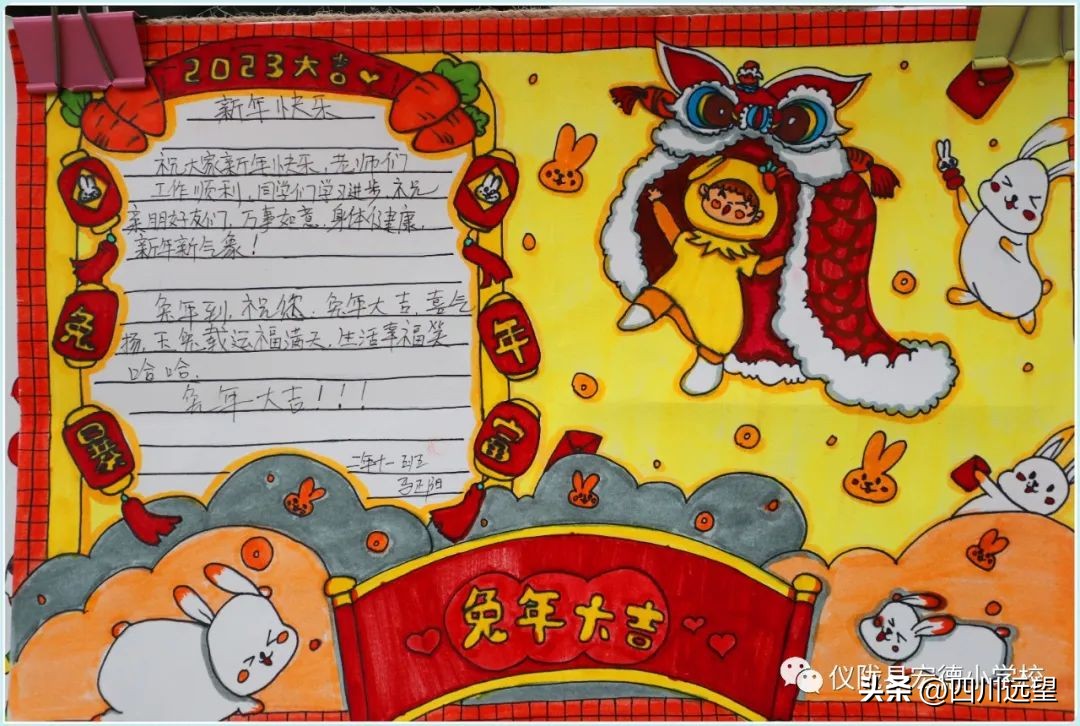 2023大吉
新年快乐
祝大家新年快乐,老师们
工作顺利,同学们学习进步,祝
亲朋好友们,万事如意,身体健康,
新年新气象!
兔年到,祝您,兔年大吉,喜气
扬,玉兔载运福满天,生活幸福笑
哈哈,
兔年大吉!!!
二年十一班
兔年
暴富
兔年大吉
仪陇县宏德小学校
头条@四川远望